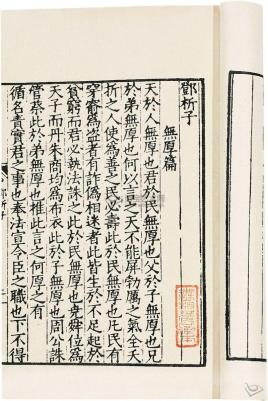 鄧析子
無厚篇
天於人無厚也君於民無厚也父於子無厚也兄
於弟無厚也何以言之天不能屏勃厲之氣全夭
折之人使為善之民必壽此於民無厚也凡民有
穿窬為盜者有詐偽相迷者此皆生於不足起於
貧窮而君必執法誅之此於民無厚也堯舜位為
天子而丹朱商均為布衣此於子無厚也周公誅
管蔡此於弟無厚也推此言之何厚之有
循名責實君之事也奉法宣令臣之職也下不得